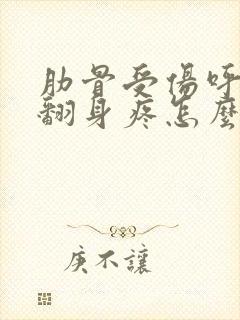 肋骨受傷呼
翻身疼怎麼
庚不讓